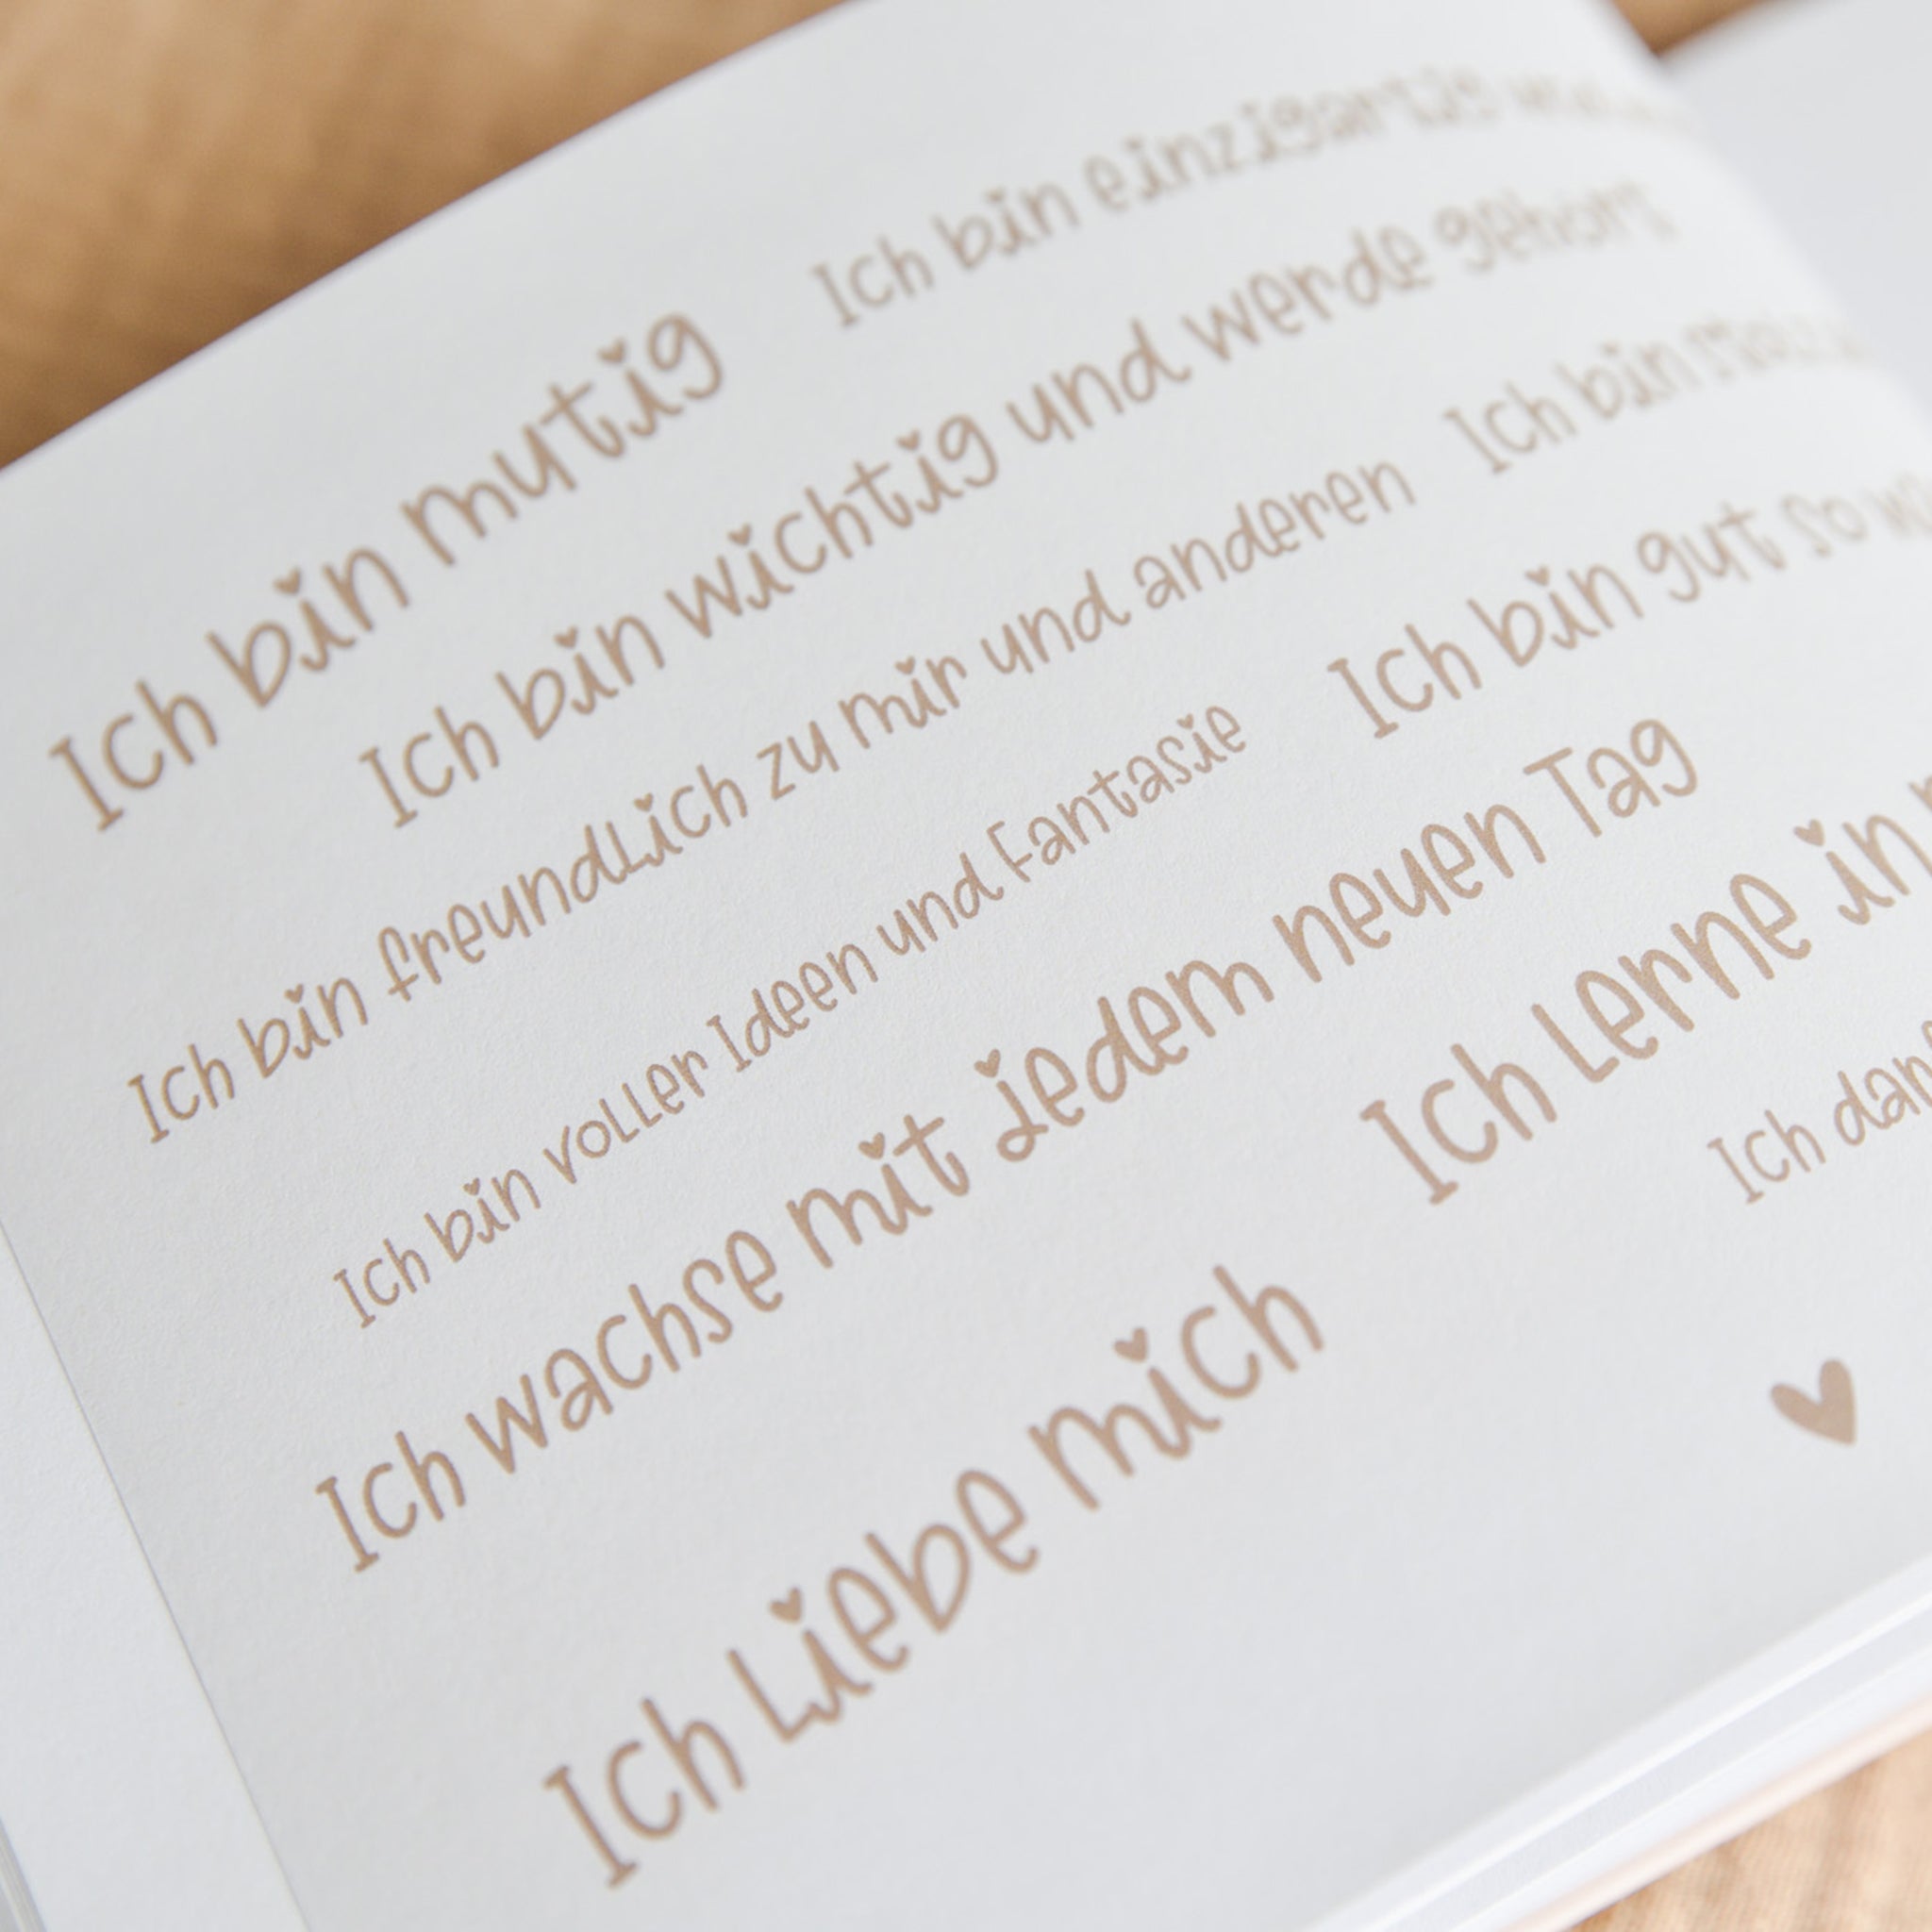 Ich bin mutig
Ich bin einzigartig
Ich bin wichtig und werde gehört
Ich bin freundlich zu mir und anderen
Ich bin
Ich bin voller Ideen und Fantasie
Ich bin gut so
Ich wachse mit jedem neuen Tag
Ich lerne in
Ich liebe mich
Ich